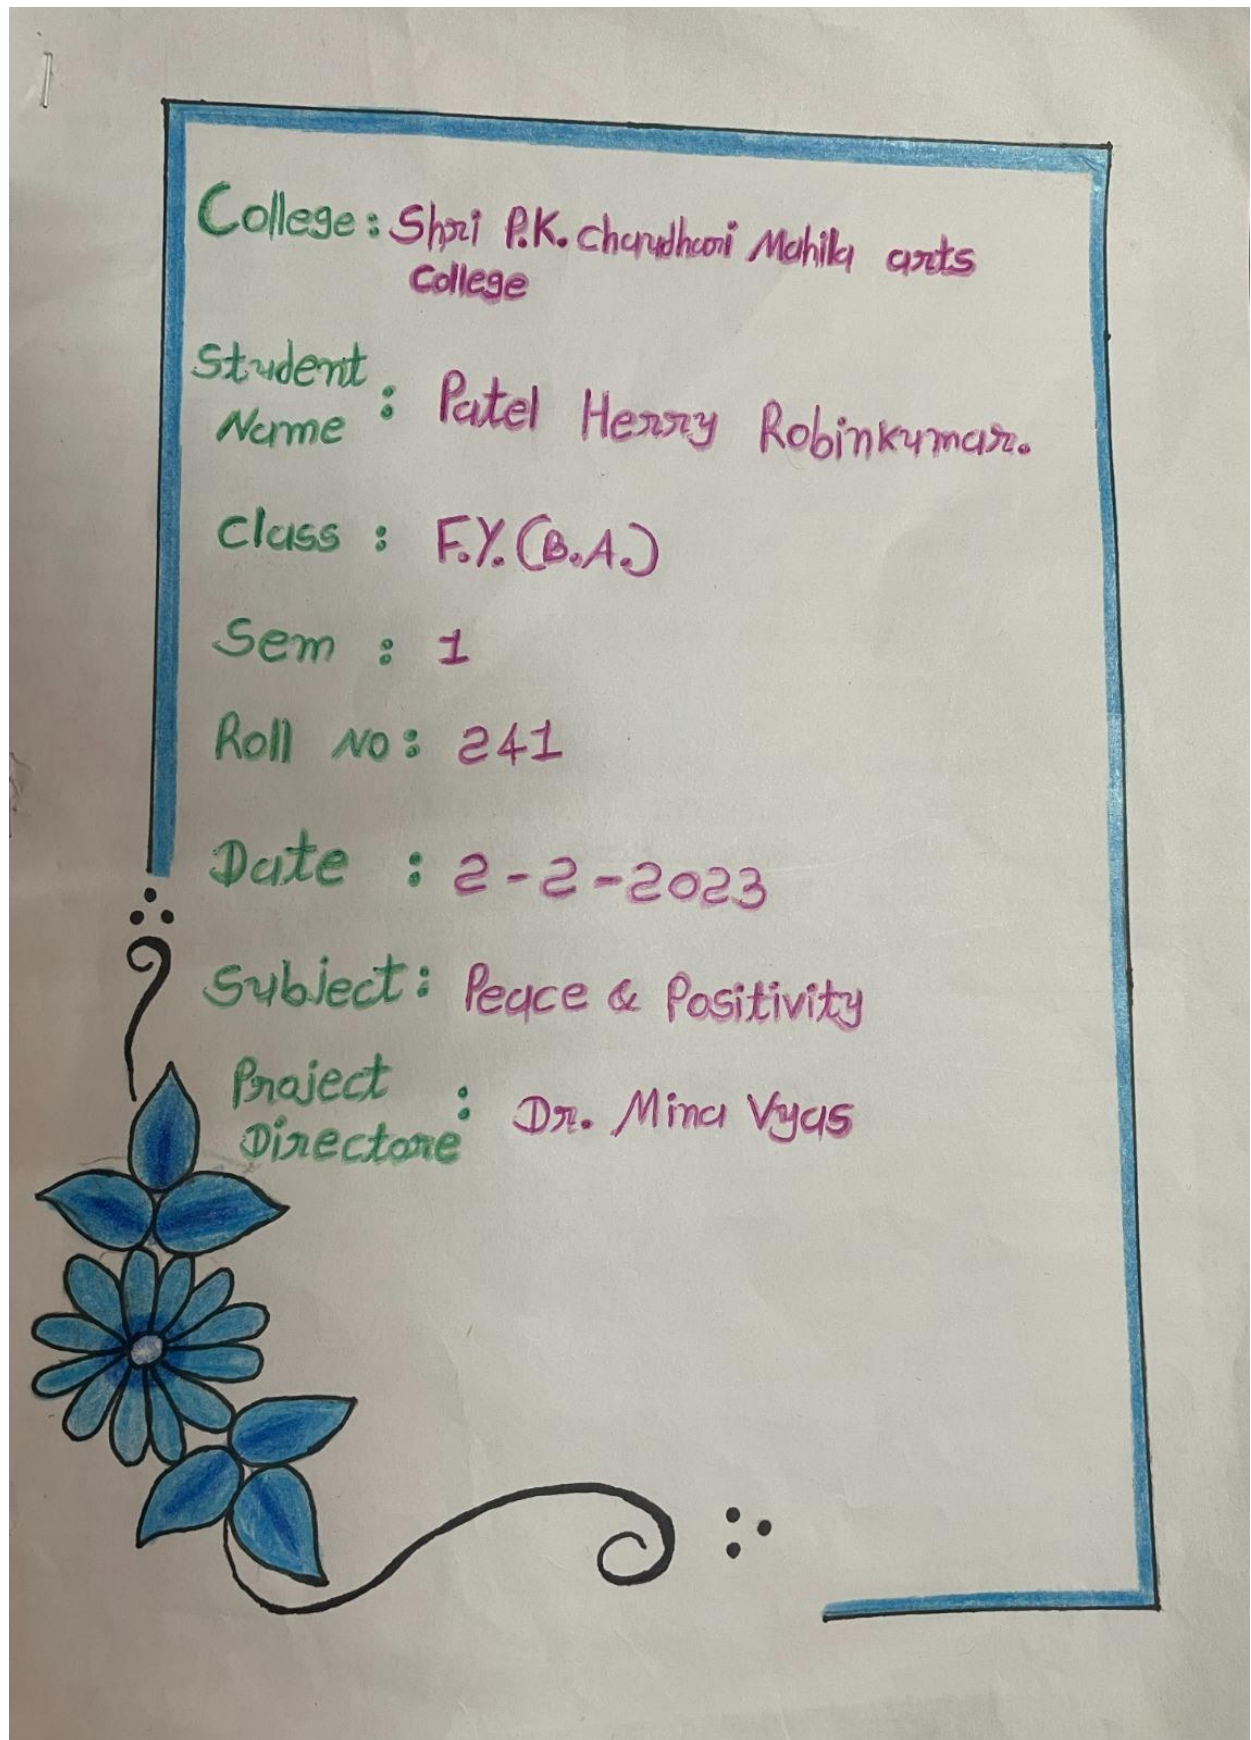 College : Shri P.K. Chaudhari Mahila arts
College
Student
Name : Patel Herry Robinkumar.
Class : F.Y. (B.A.)
Sem : 1
Roll No : 241
Date : 2-2-2023
Subject : Peace & Positivity
Project
Directore : Dr. Mina Vyas